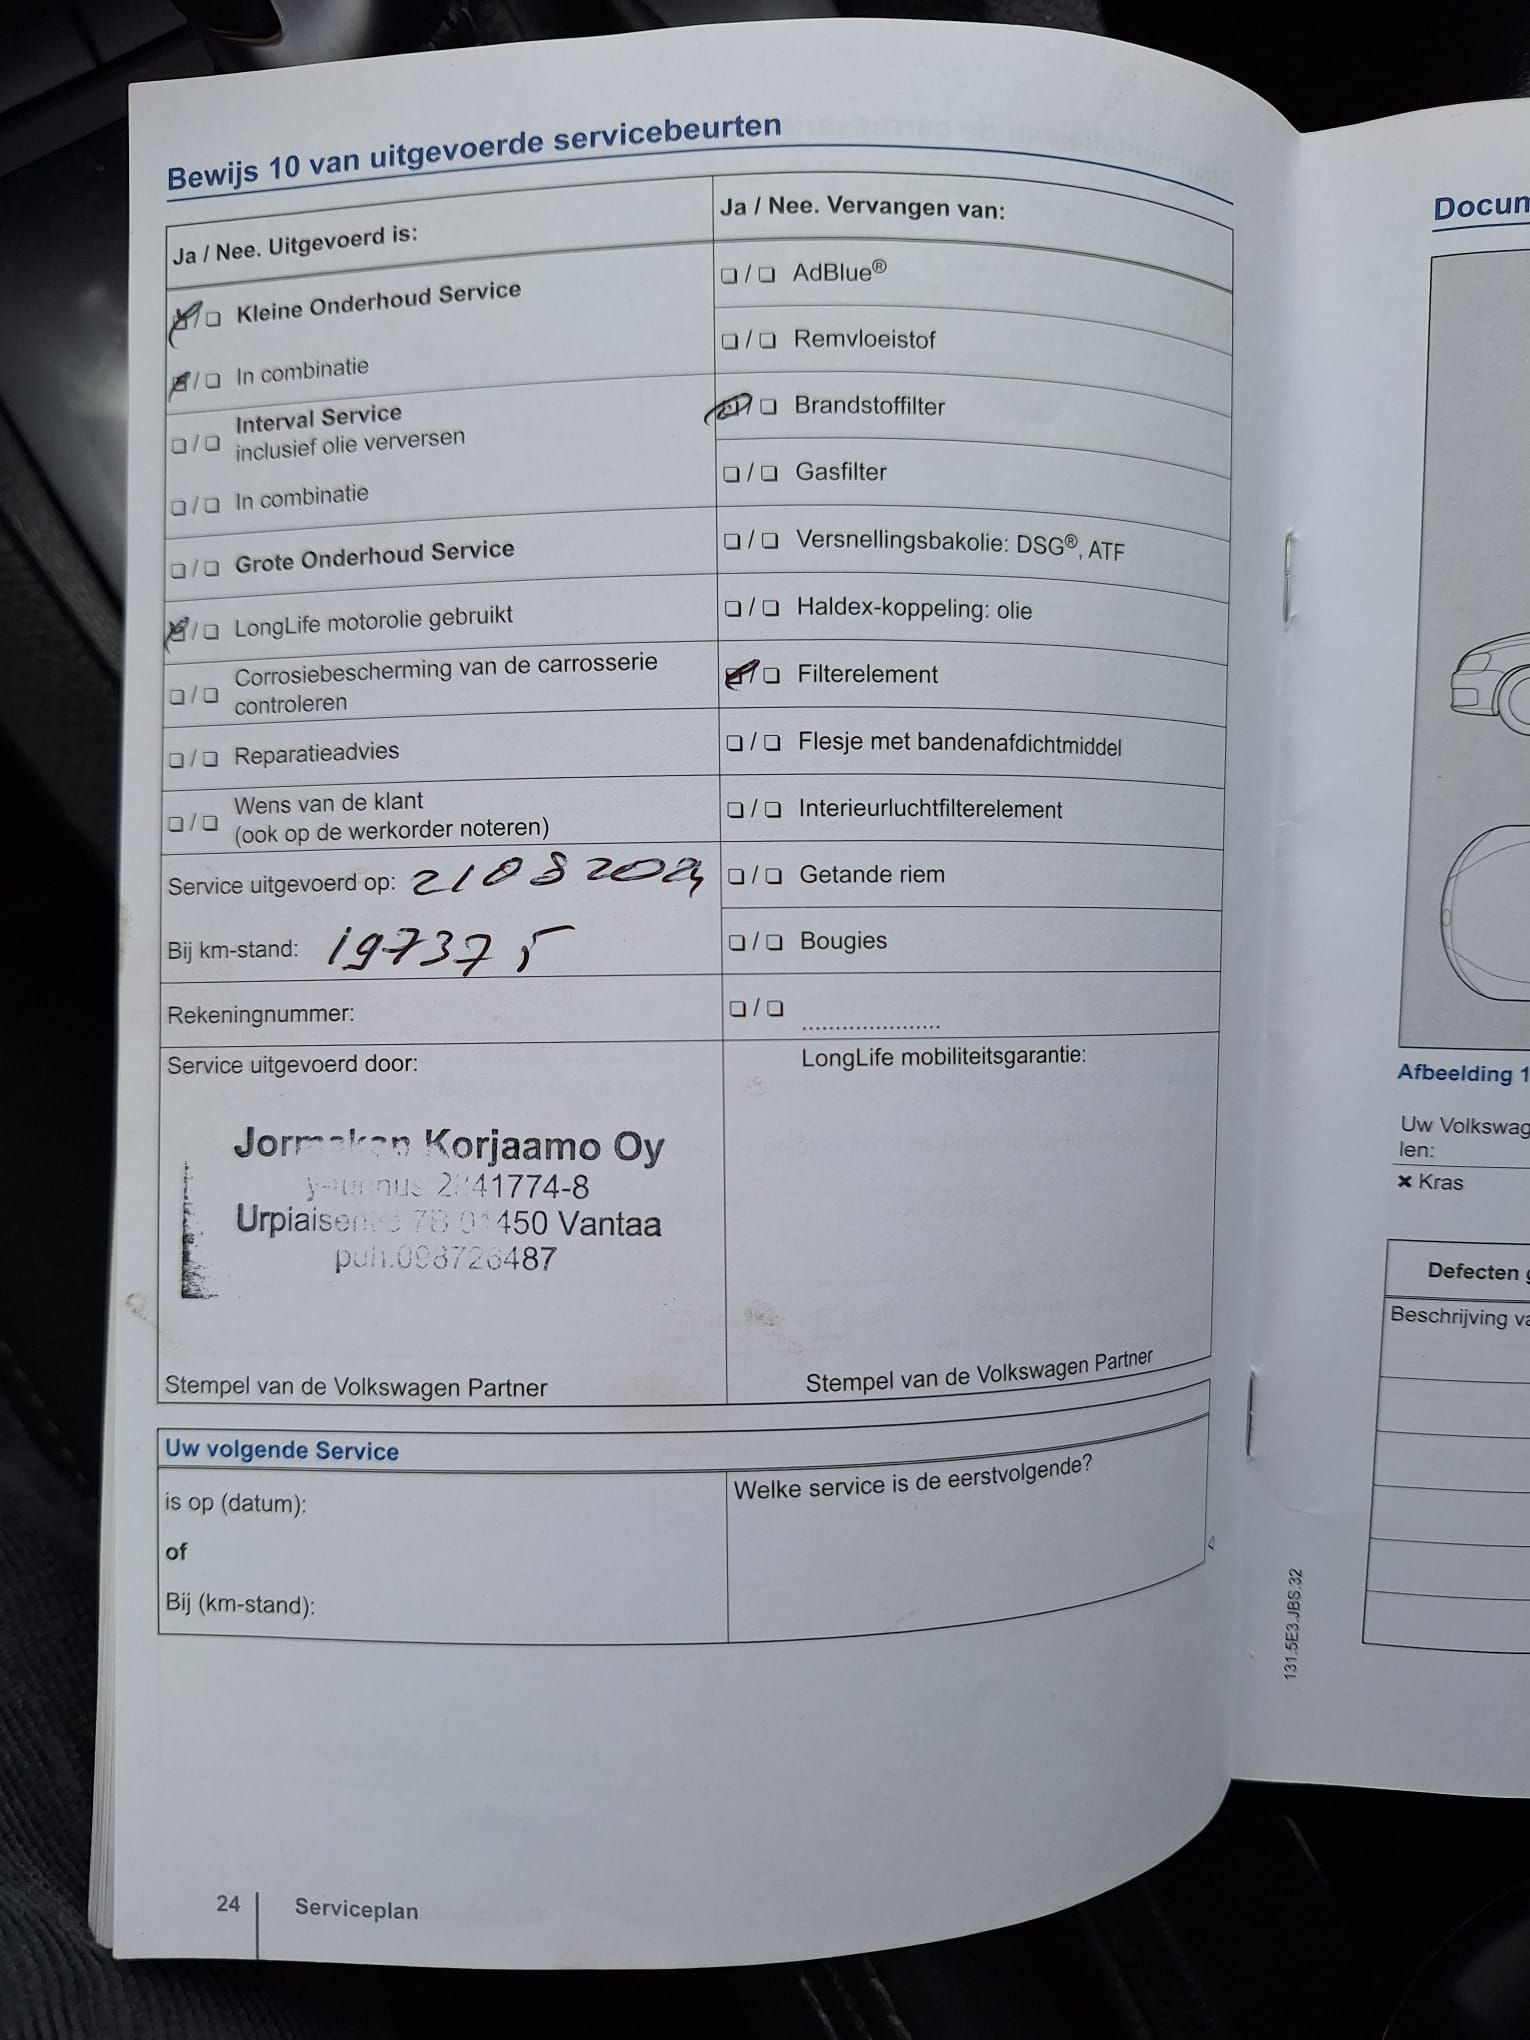 Bewijs 10 van uitgevoerde servicebeurten
Ja / Nee. Uitgevoerd is:
Kleine Onderhoud Service
In combinatie
Interval Service
inclusief olie verversen
In combinatie
Grote Onderhoud Service
LongLife motorolie gebruikt
Corrosiebescherming van de carrosserie
controleren
Reparatieadvies
Wens van de klant
(ook op de werkorder noteren)
Service uitgevoerd op: 2108
Bij km-stand: 197375
Rekeningnummer:
Service uitgevoerd door:
Korjaamo Oy
Vantaa
Stempel van de Volkswagen Partner
Ja / Nee. Vervangen van:
AdBlue®
Remvloeistof
Brandstoffilter
Gasfilter
Versnellingsbakolie: DSG®, ATF
Haldex-koppeling: olie
Filterelement
Flesje met bandenafdichtmiddel
Interieurluchtfilterelement
Getande riem
Bougies
LongLife mobiliteitsgarantie:
Stempel van de Volkswagen Partner
Uw volgende Service
is op (datum):
of
Bij (km-stand):
Welke service is de eerstvolgende?
24 Serviceplan
131.5E3.JBS.32
Docum
Afbeelding 1
Uw Volkswag
len:
× Kras
Defecten
Beschrijving va